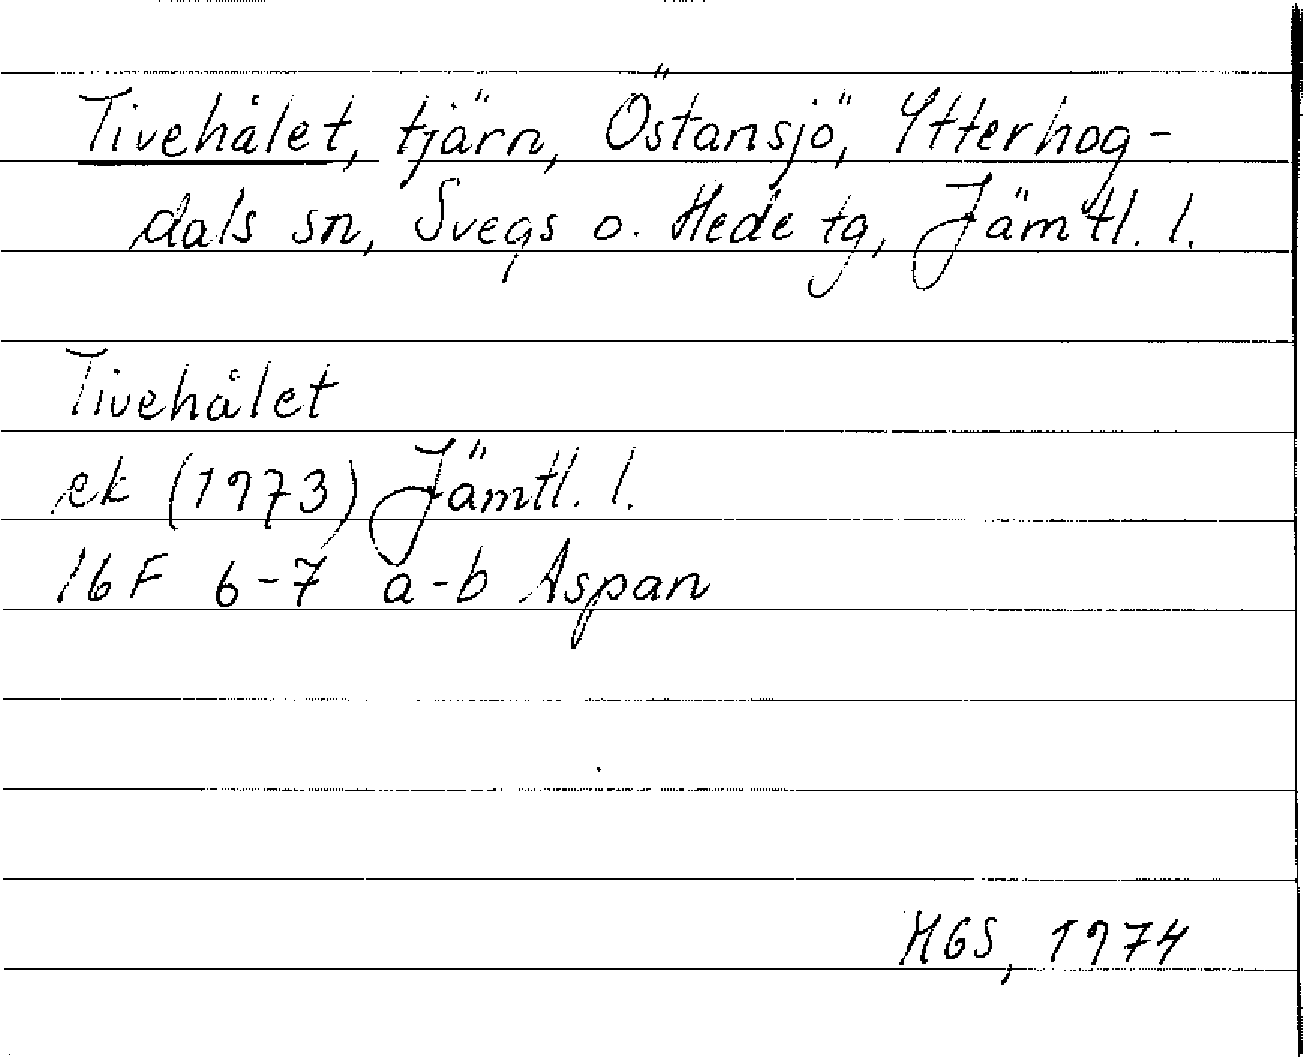 Tivehålet, tjärn, Östansjö, Ytterhog-
dals sn, Svegs o. Hede tg, Jämtl. l.
Tivehålet
ek (1973) Jämtl. l.
16F 6-7 a-b Aspan
HGS, 1974